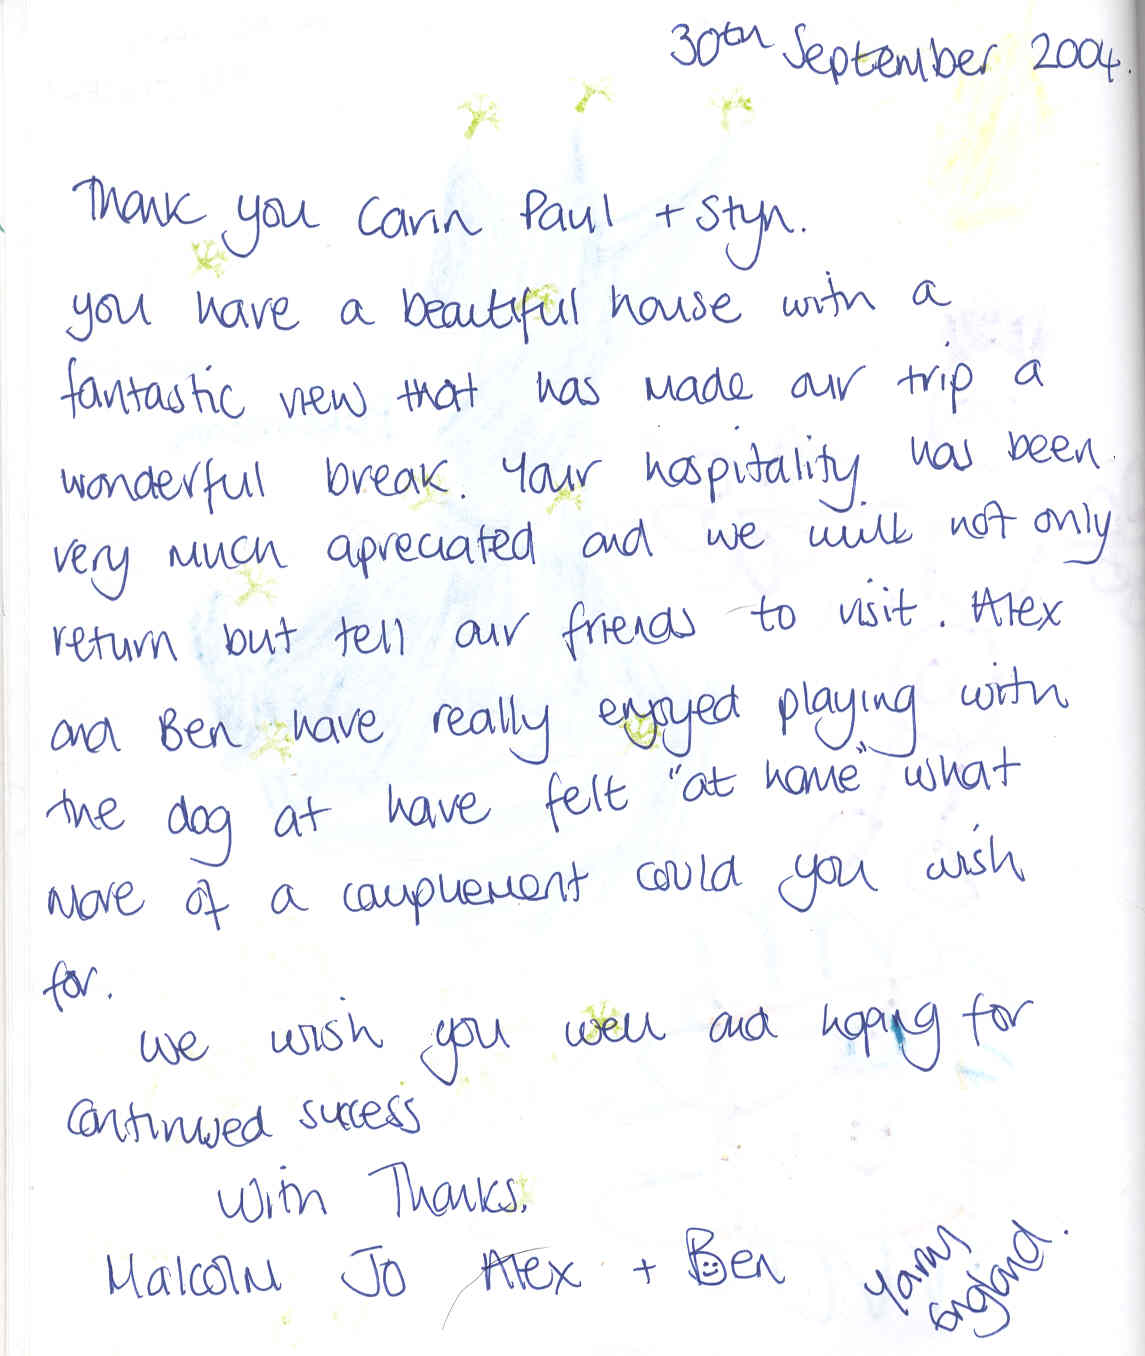 30th September 2004.
Thank you Carin Paul + Styn.
you have a beautiful house with a
fantastic view that has made our trip a
wonderful break. Your hospitality has been
very much apreciated and we will not only
return but tell our friends to visit. Alex
and Ben have really enjoyed playing with
the dog at have felt "at home" what
more of a complement could you wish
for.
We wish you well and hoping for
continued success
With Thanks.
Malcolm Jo Alex + Ben
England.